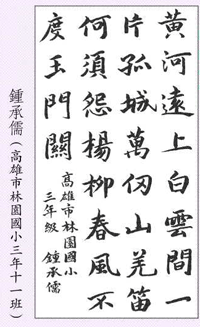 黃河遠上白雲間一
片孤城萬仞山羌笛
何須怨楊柳春風不
度玉門關
高雄市林園國小
三年級 鍾承儒
鍾承儒(高雄市林園國小三年十一班)